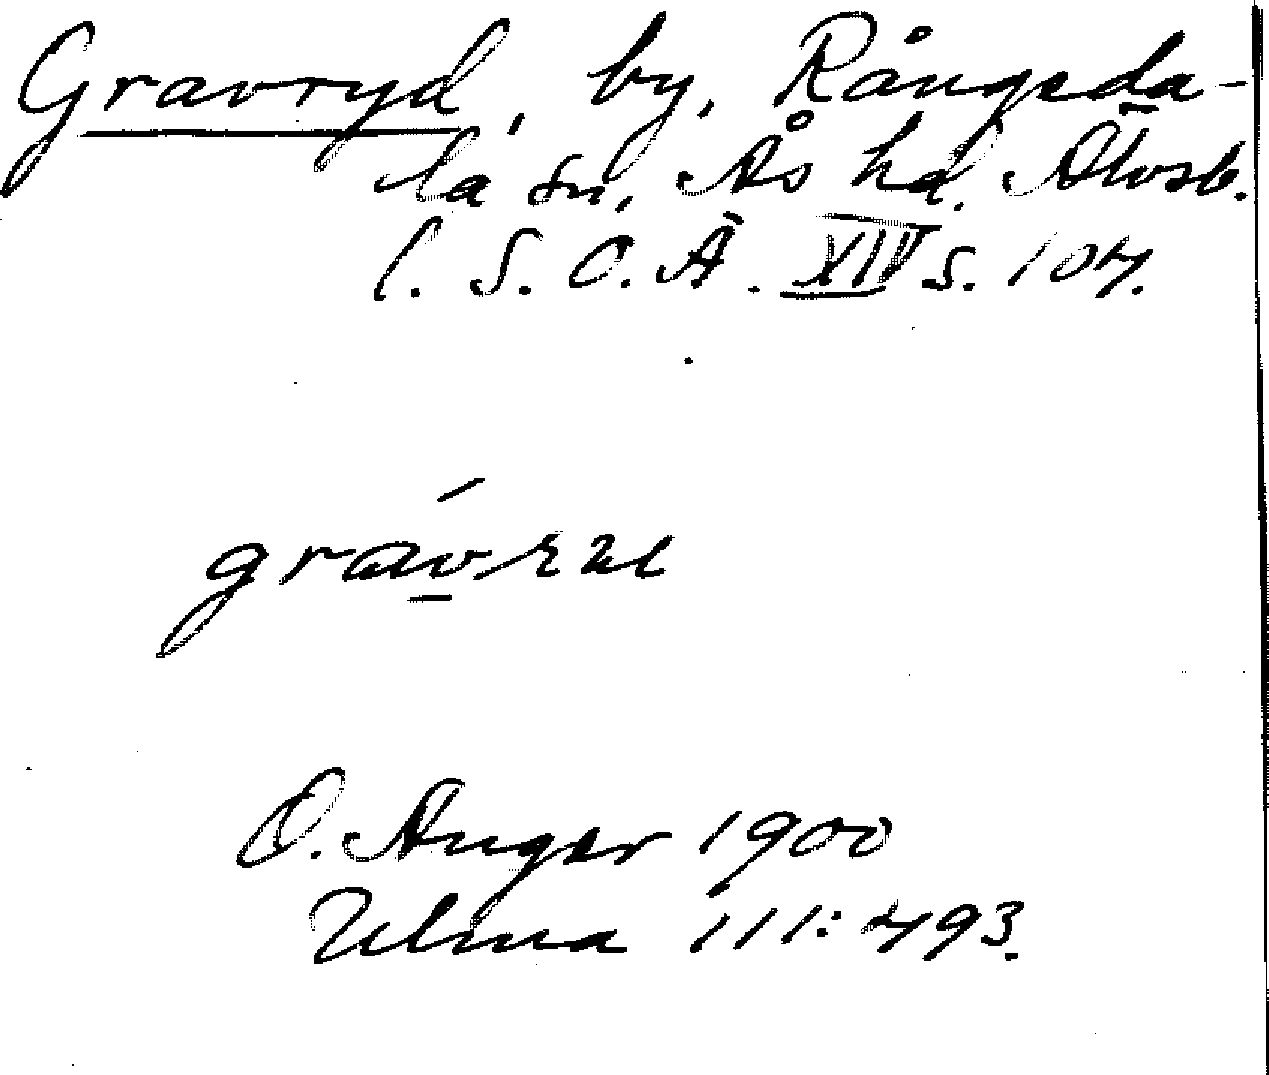 Gravryd, by, Rångeda-
la sn, Ås hd. Älvsb.
l. S. O. Ä. XIV s. 107.
O. Ångar 1900
Ulma 111: 493.